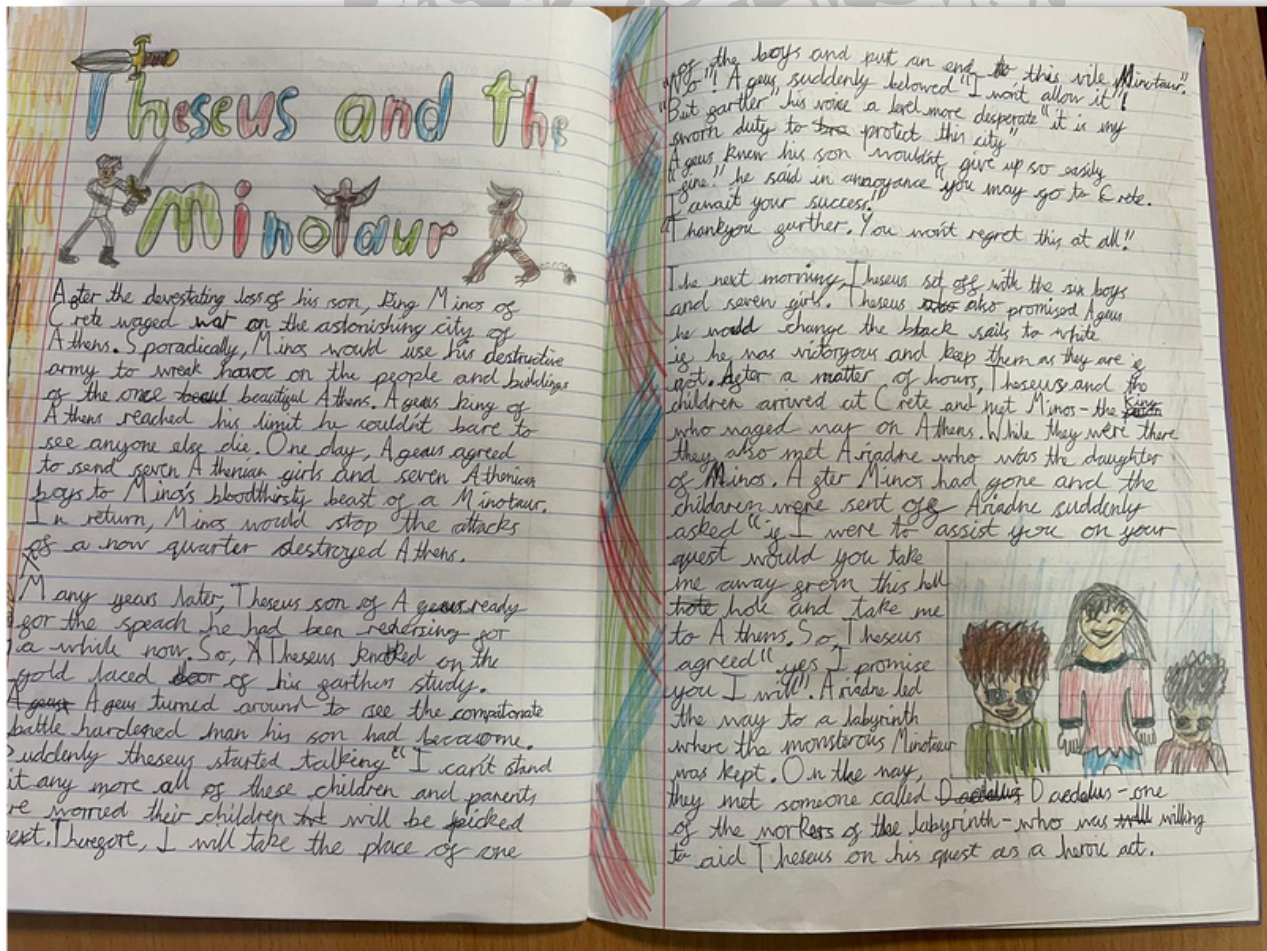 Theseus and the
Minotaur
After the devestating loss of his son, King Minos of
Crete waged war on the astonishing city of
Athens. Sporadically, Minos would use his destructive
army to wreak havoc on the people and buildings
of the once beautiful Athens. Ageus king of
Athens reached his limit he couldn't bare to
see anyone else die. One day, Ageus agreed
to send seven Athenian girls and seven Athenian
boys to Minos's bloodthirsty beast of a Minotaur.
In return, Minos would stop the attacks
of a now quarter destroyed Athens.
Many years later, Theseus son of Ageus, ready
for the speach he had been rehersing for
a while now. So, Theseus knocked on the
gold laced door of his farthers study.
Ageus turned around to see the compationate
battle hardened man his son had becaome.
Suddenly theseus started talking "I can't stand
it any more all of these children and parents
re worried their children will be picked
ext. Therefore, I will take the place of one
of the boys and put an end to this vile Minotaur."
"No"! Ageus suddenly belowed "I won't allow it"!
"But farther" his voice a level more desperate "it is my
sworn duty to protect this city"
Ageus knew his son wouldn't give up so easily
"fine!" he said in annoyance "you may go to Crete.
I await your success."
"Thankyou further. You won't regret this at all!"
The next morning, Theseus set off with the six boys
and seven girls. Theseus also promised Ageus
he would change the black sails to white
if he was victoryous and keep them as they are if
not. After a matter of hours, Theseus and the
children arrived at Crete and met Minos - the king
who waged way on Athens. While they were there
they also met Ariadne who was the daughter
of Minos. After Minos had gone and the
childaren were sent off Ariadne suddenly
asked "if I were to assist you on your
quest would you take
me away from this hell
hole and take me
to Athens. So, Theseus
agreed "yes I promise
you I will". Ariadne led
the way to a labyrinth
where the monsterous Minotaur
was kept. On the way,
they met someone called Daedalus - one
of the workers of the labyrinth - who was willing
to aid Theseus on his quest as a heroic act.